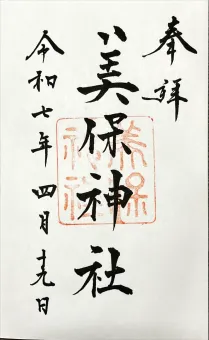 奉拝
美保神社
美保
神社
令和七年 四月 十九日